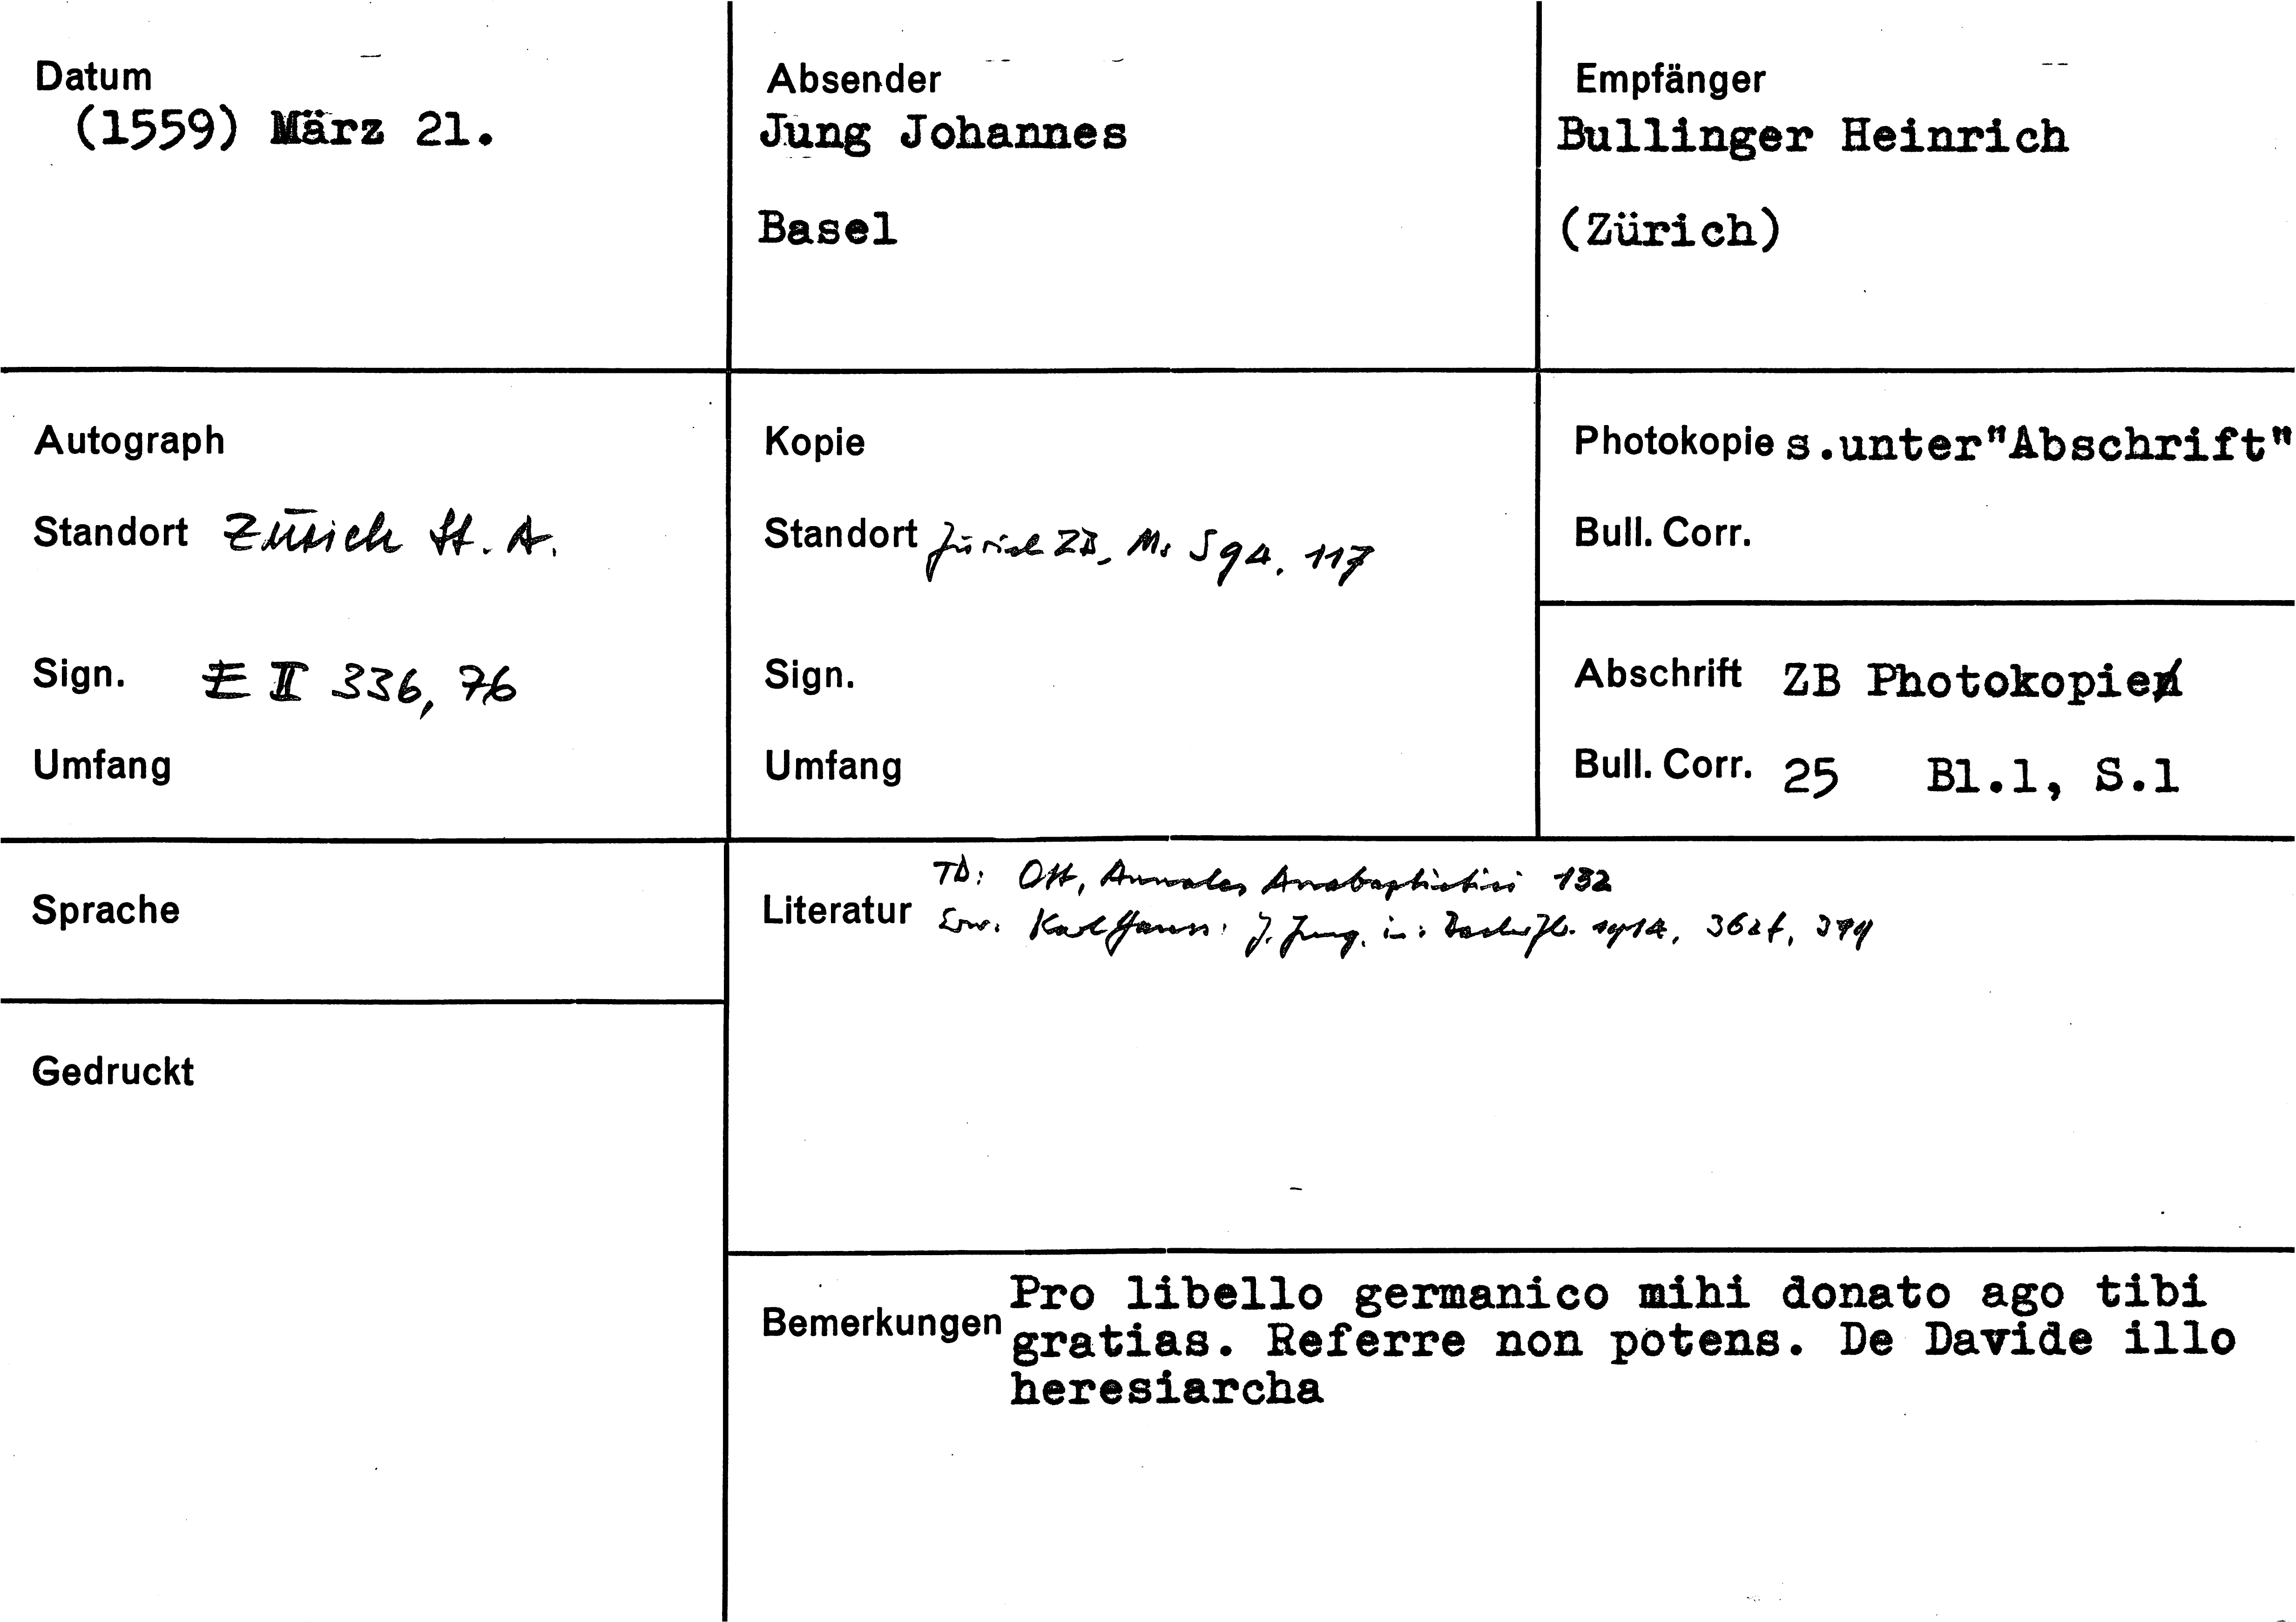 Datum
(1559) März 21.
Absender
Jung Johannes
Basel
Empfänger
Bullinger Heinrich
(Zürich)
Autograph
Standort Zürich St. A.
Sign. E II 336, 76
Umfang
Kopie
Standort Zürich ZB, Ms S 94, 117
Sign.
Umfang
Photokopie s.unter"Abschrift"
Bull. Corr.
Abschrift ZB Photokopie
Bull. Corr. 25 Bl.1, S.1
Sprache
Gedruckt
TD: Ott, Annales Anabaptistici 132
Literatur Erw. Karl Gauss: J. Jung, in: 1914,
Bemerkungen Pro libello germanico mihi donato ago tibi
gratias. Referre non potens. De Davide illo
heresiarcha